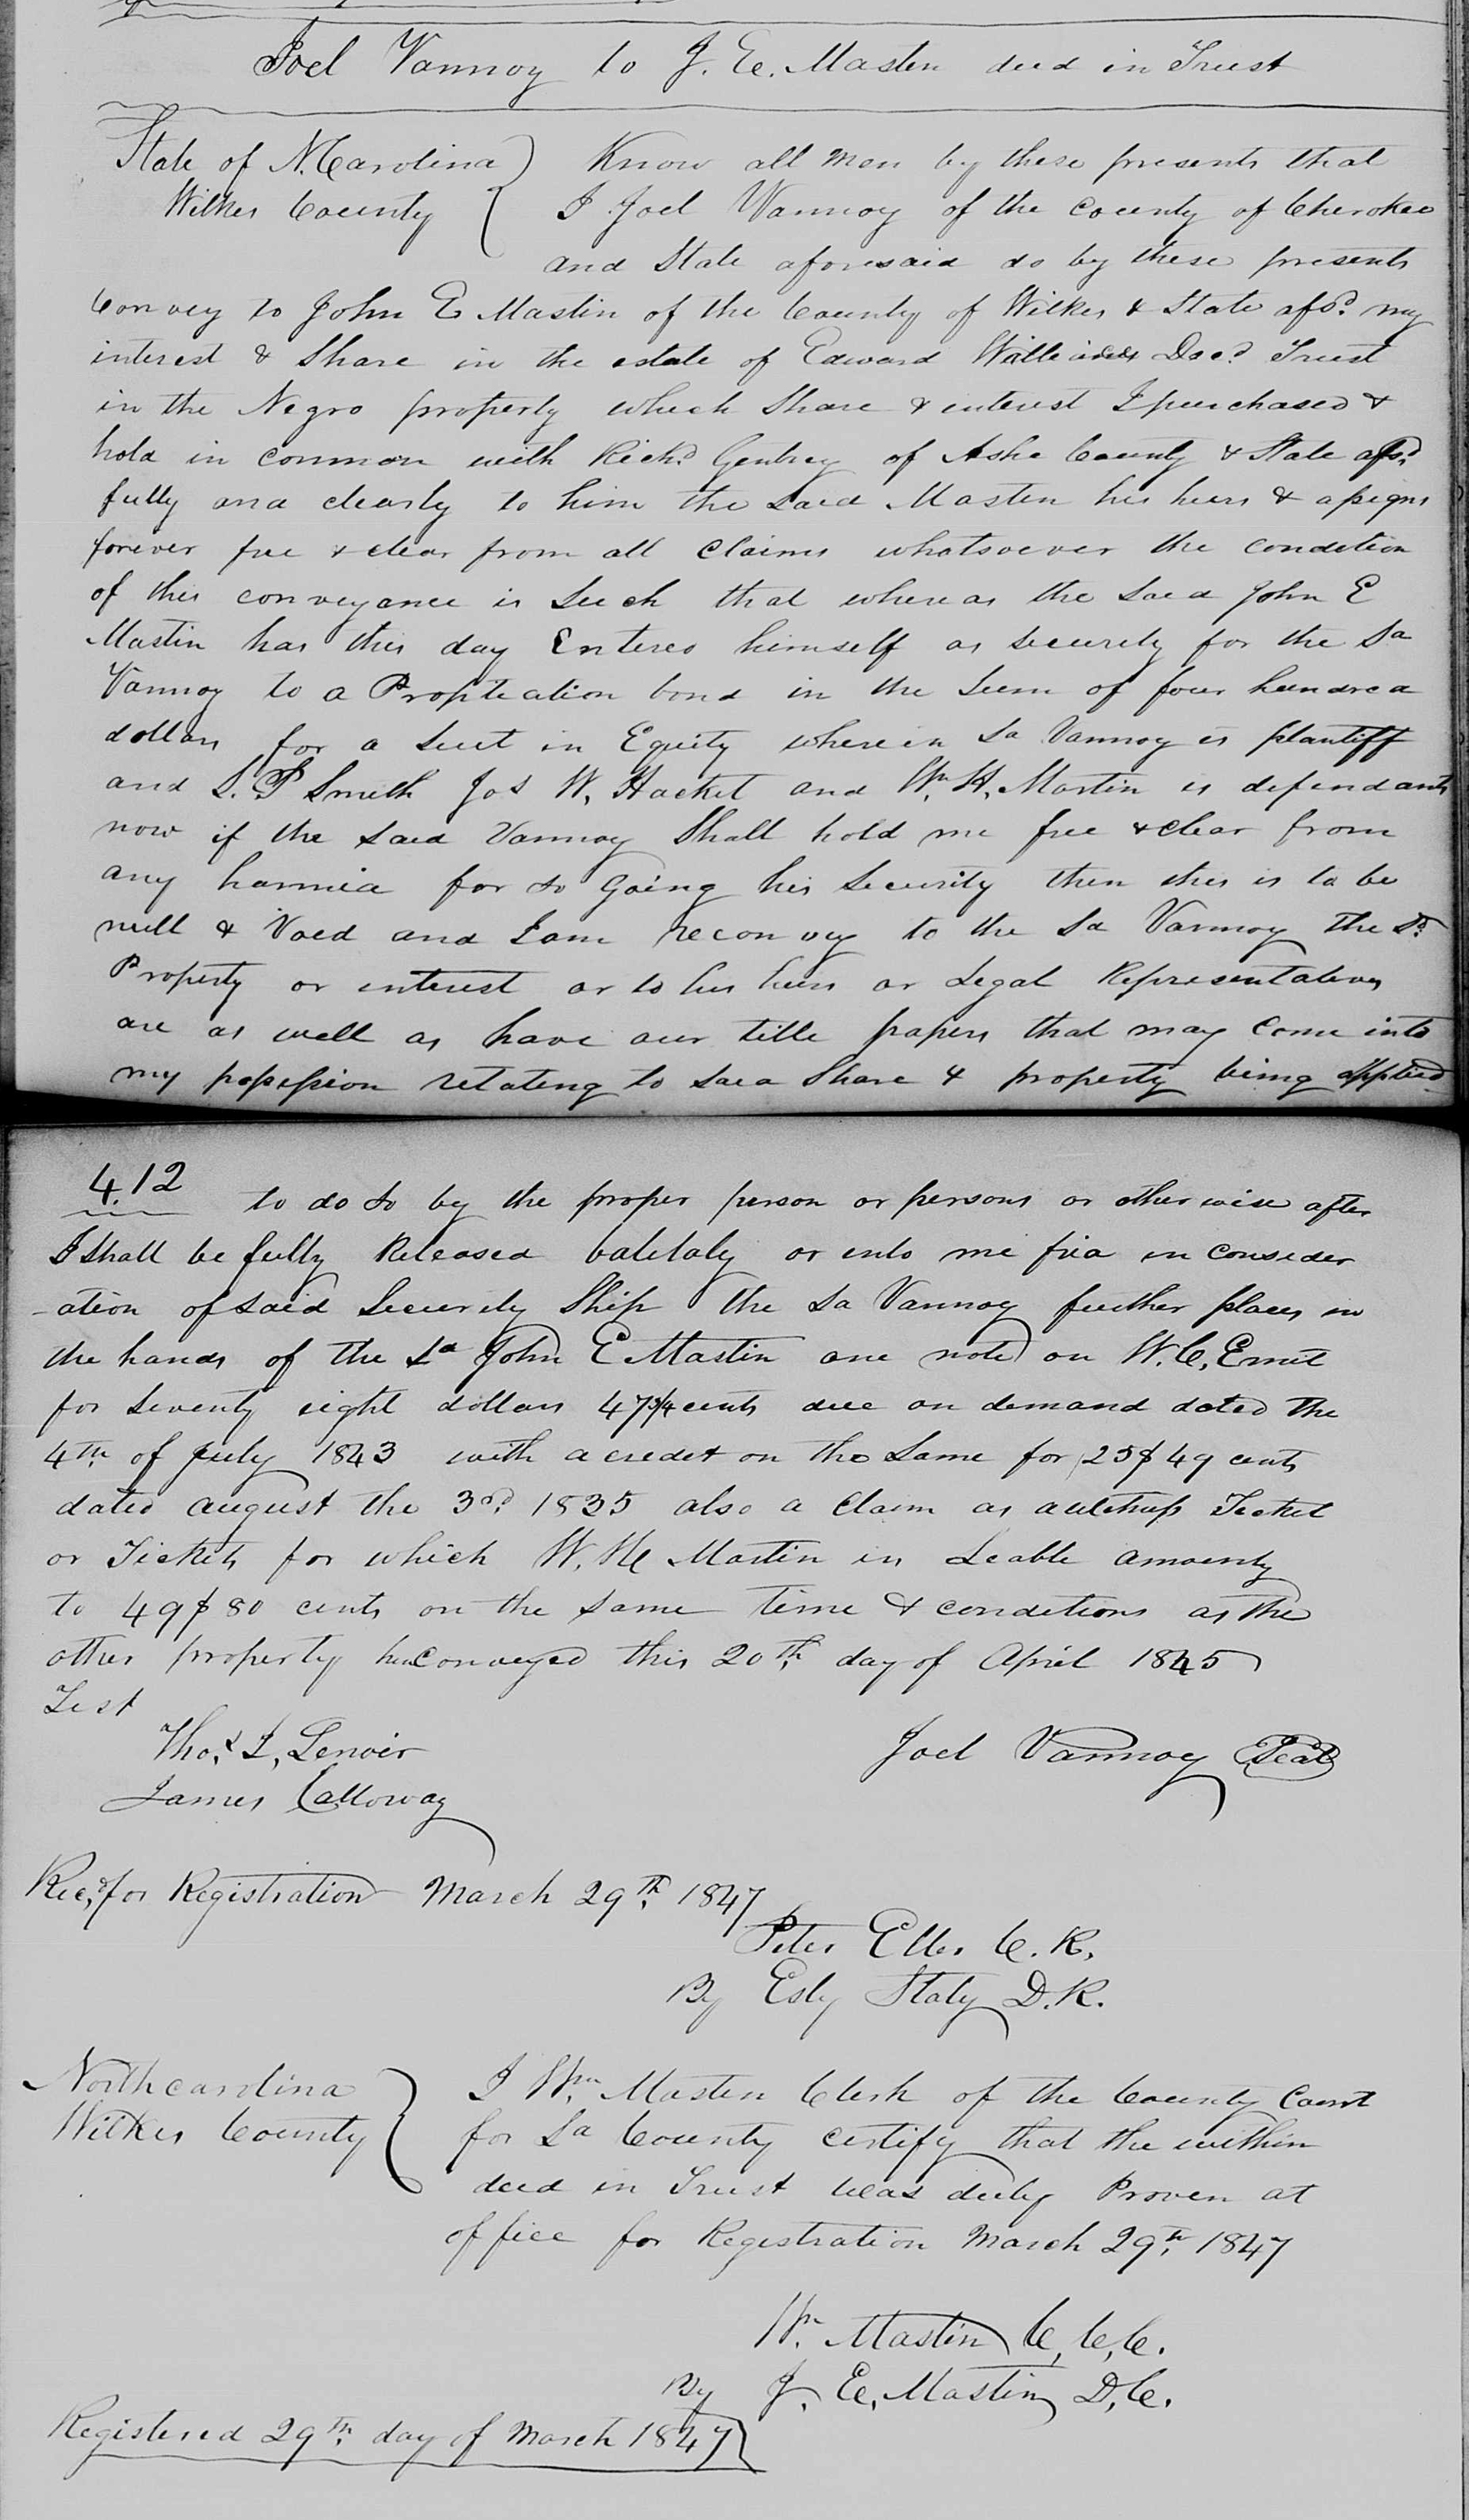 Joel Vannoy to J. E. Masten deed in Trust
State of N. Carolina ) Know all Men by these presents that
Wilkes County ( I Joel Vannoy of the County of Cherokee
and State aforesaid do by these presents
Convey to John E Mastin of the County of Wilkes & State afsd. my
interest & Share in the estate of Edward Decd. Trust
in the Negro property which Share & interest I purchased &
hold in common with Richd. Gentrey of Ashe County & State afsd.
fully and clearly to him the said Masten his heirs & assigns
forever free & clear from all claims whatsoever the condition
of this conveyance is Such that whereas the said John E
Mastin has this day Entered himself as security for the Sd
Vannoy to a bond in the Sum of four hundred
dollars for a suit in Equity wherein Sd Vannoy is plantiff
and S. P Smith Jos W. Hacket and Wm. H. Martin is defendants
now if the said Vannoy Shall hold me free & clear from
any for so Going his Security then this is to be
null & Void and I am reconvey to the Sd Vannoy the Sd.
Property or interest or to his heirs or Legal Representatives
are as well as have our title papers that may Come into
my possession relating to said Share & property being applied
412 to do so by the proper person or persons or otherwise after
I shall be fully Released or into me in consider
-ation of said Security Ship the Sd Vannoy further places in
the hands of the Sd John E Mastin one note on W. C. Emit
for seventy eight dollars 47 3/4 cents due on demand dated the
4th. of July 1843 with a credit on the Same for 25$ 49 cents
dated august the 3rd. 1835 also a Claim as Ticket
or Tickets for which W. H Martin in Leable amounty
to 49$ 80 cents on the same time & conditions as the
other property conveyed this 20th. day of April 1845
Test
Thos. I. Lenoir Joel Vannoy Seal
James Calloway
Recd. for Registration March 29th. 1847
Peter Eller C. R.
By Esly Staly D. R.
North carolina } I Wm. Masten Clerk of the County Court
Wilkes County for Sd County certify that the within
deed in Trust was duly Proven at
office for Registration March 29th. 1847
Wm. Mastin C. C. C.
By J. E. Mastin D. C.
Registered 29th. day of March 1847